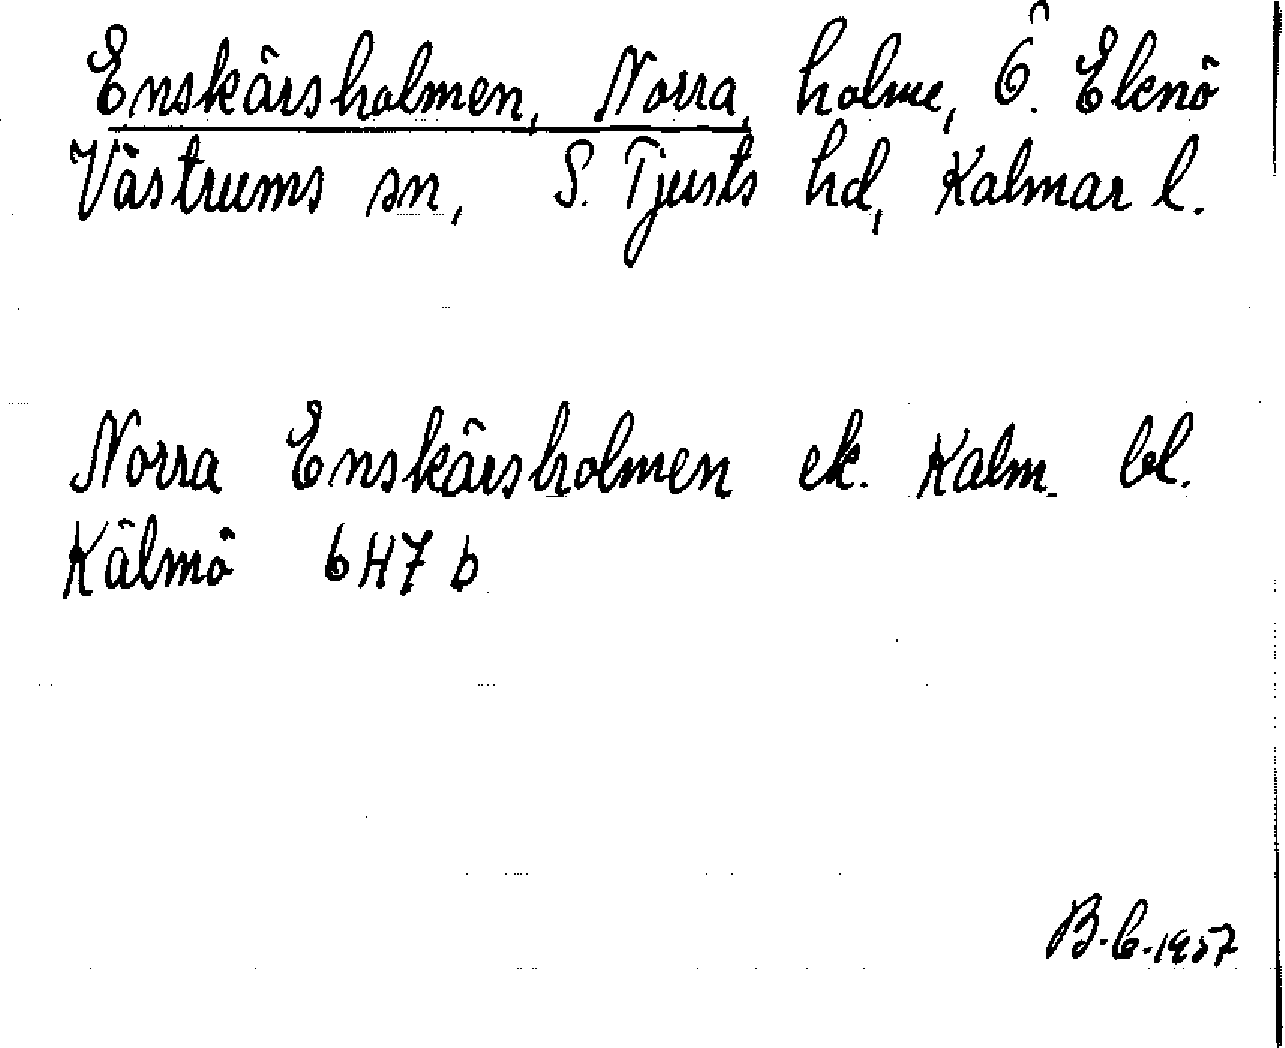 Enskärsholmen, Norra, holme, Ö. Ekenö
Västrums sn, S. Tjusts hd, Kalmar l.
Norra Enskärsholmen ek. Kalm. bl.
Kälmö 6H7b
B.G.1957